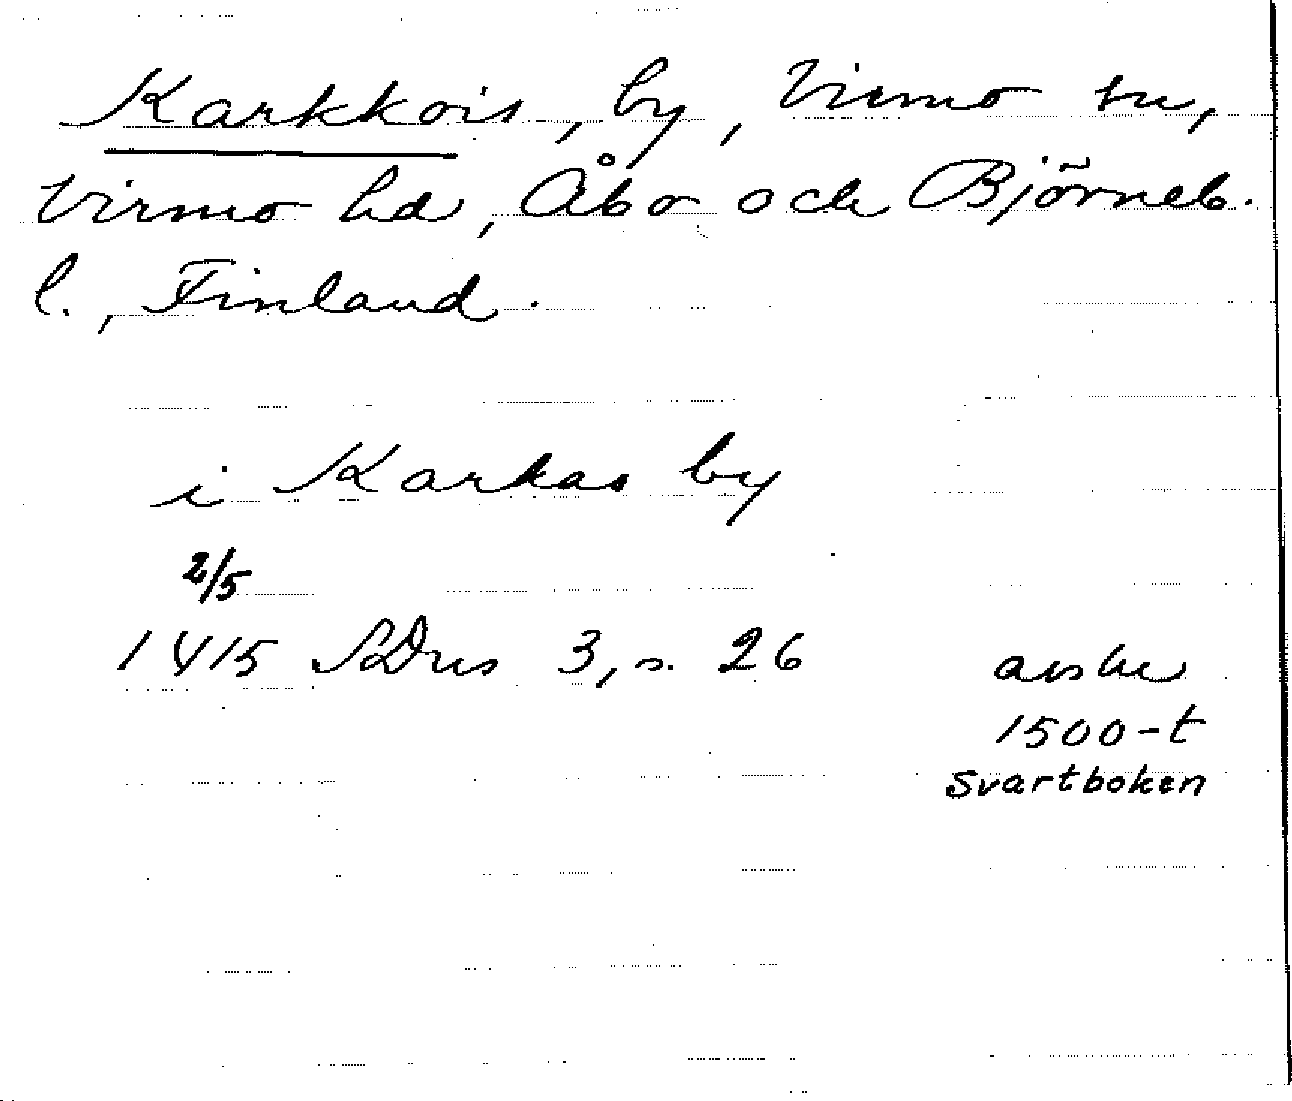 Karkkois, by, Virmo sn,
Virmo hd, Åbo och Björneb.
l., Finland.
i Karkas by
2/5
1415 SDns 3, s. 26
avskr
1500-t
Svartboken